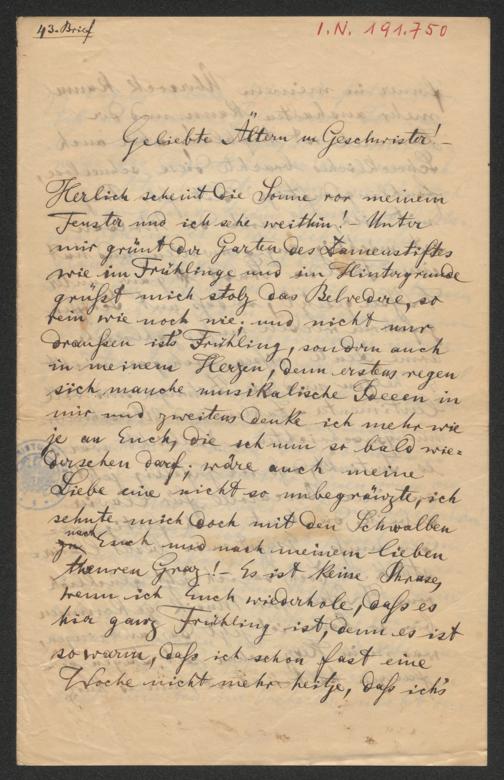 43. Brief
I.N. 191.750
Geliebte Ältern u Geschwister! –
Herlich scheint die Sonne vor meinem
Fenster und ich sehe weithin! – Unter
mir grünt der Garten des Damenstiftes
wie im Frühlinge und im Hintergrunde
grüßt mich stolz das Belvedere, so
rein wie noch nie; und nicht nur
draussen ists Frühling, sondern auch
in meinem Herzen, denn erstens regen
sich manche musikalische Ideeen in
mir und zweitens denke ich mehr wie
je an Euch, die ich nun so bald wie=
dersehen darf; wäre auch meine
Liebe eine nicht so unbegränzte, ich
sehnte mich doch mit den Schwalben
nach
zu Euch und nach meinem lieben
theuren Graz! – Es ist keine Phrase,
wenn ich Euch wiederhole, daß es
hier ganz Frühling ist, denn es ist
so warm, daß ich schon fast eine
Woche nicht mehr heitze, daß ich's